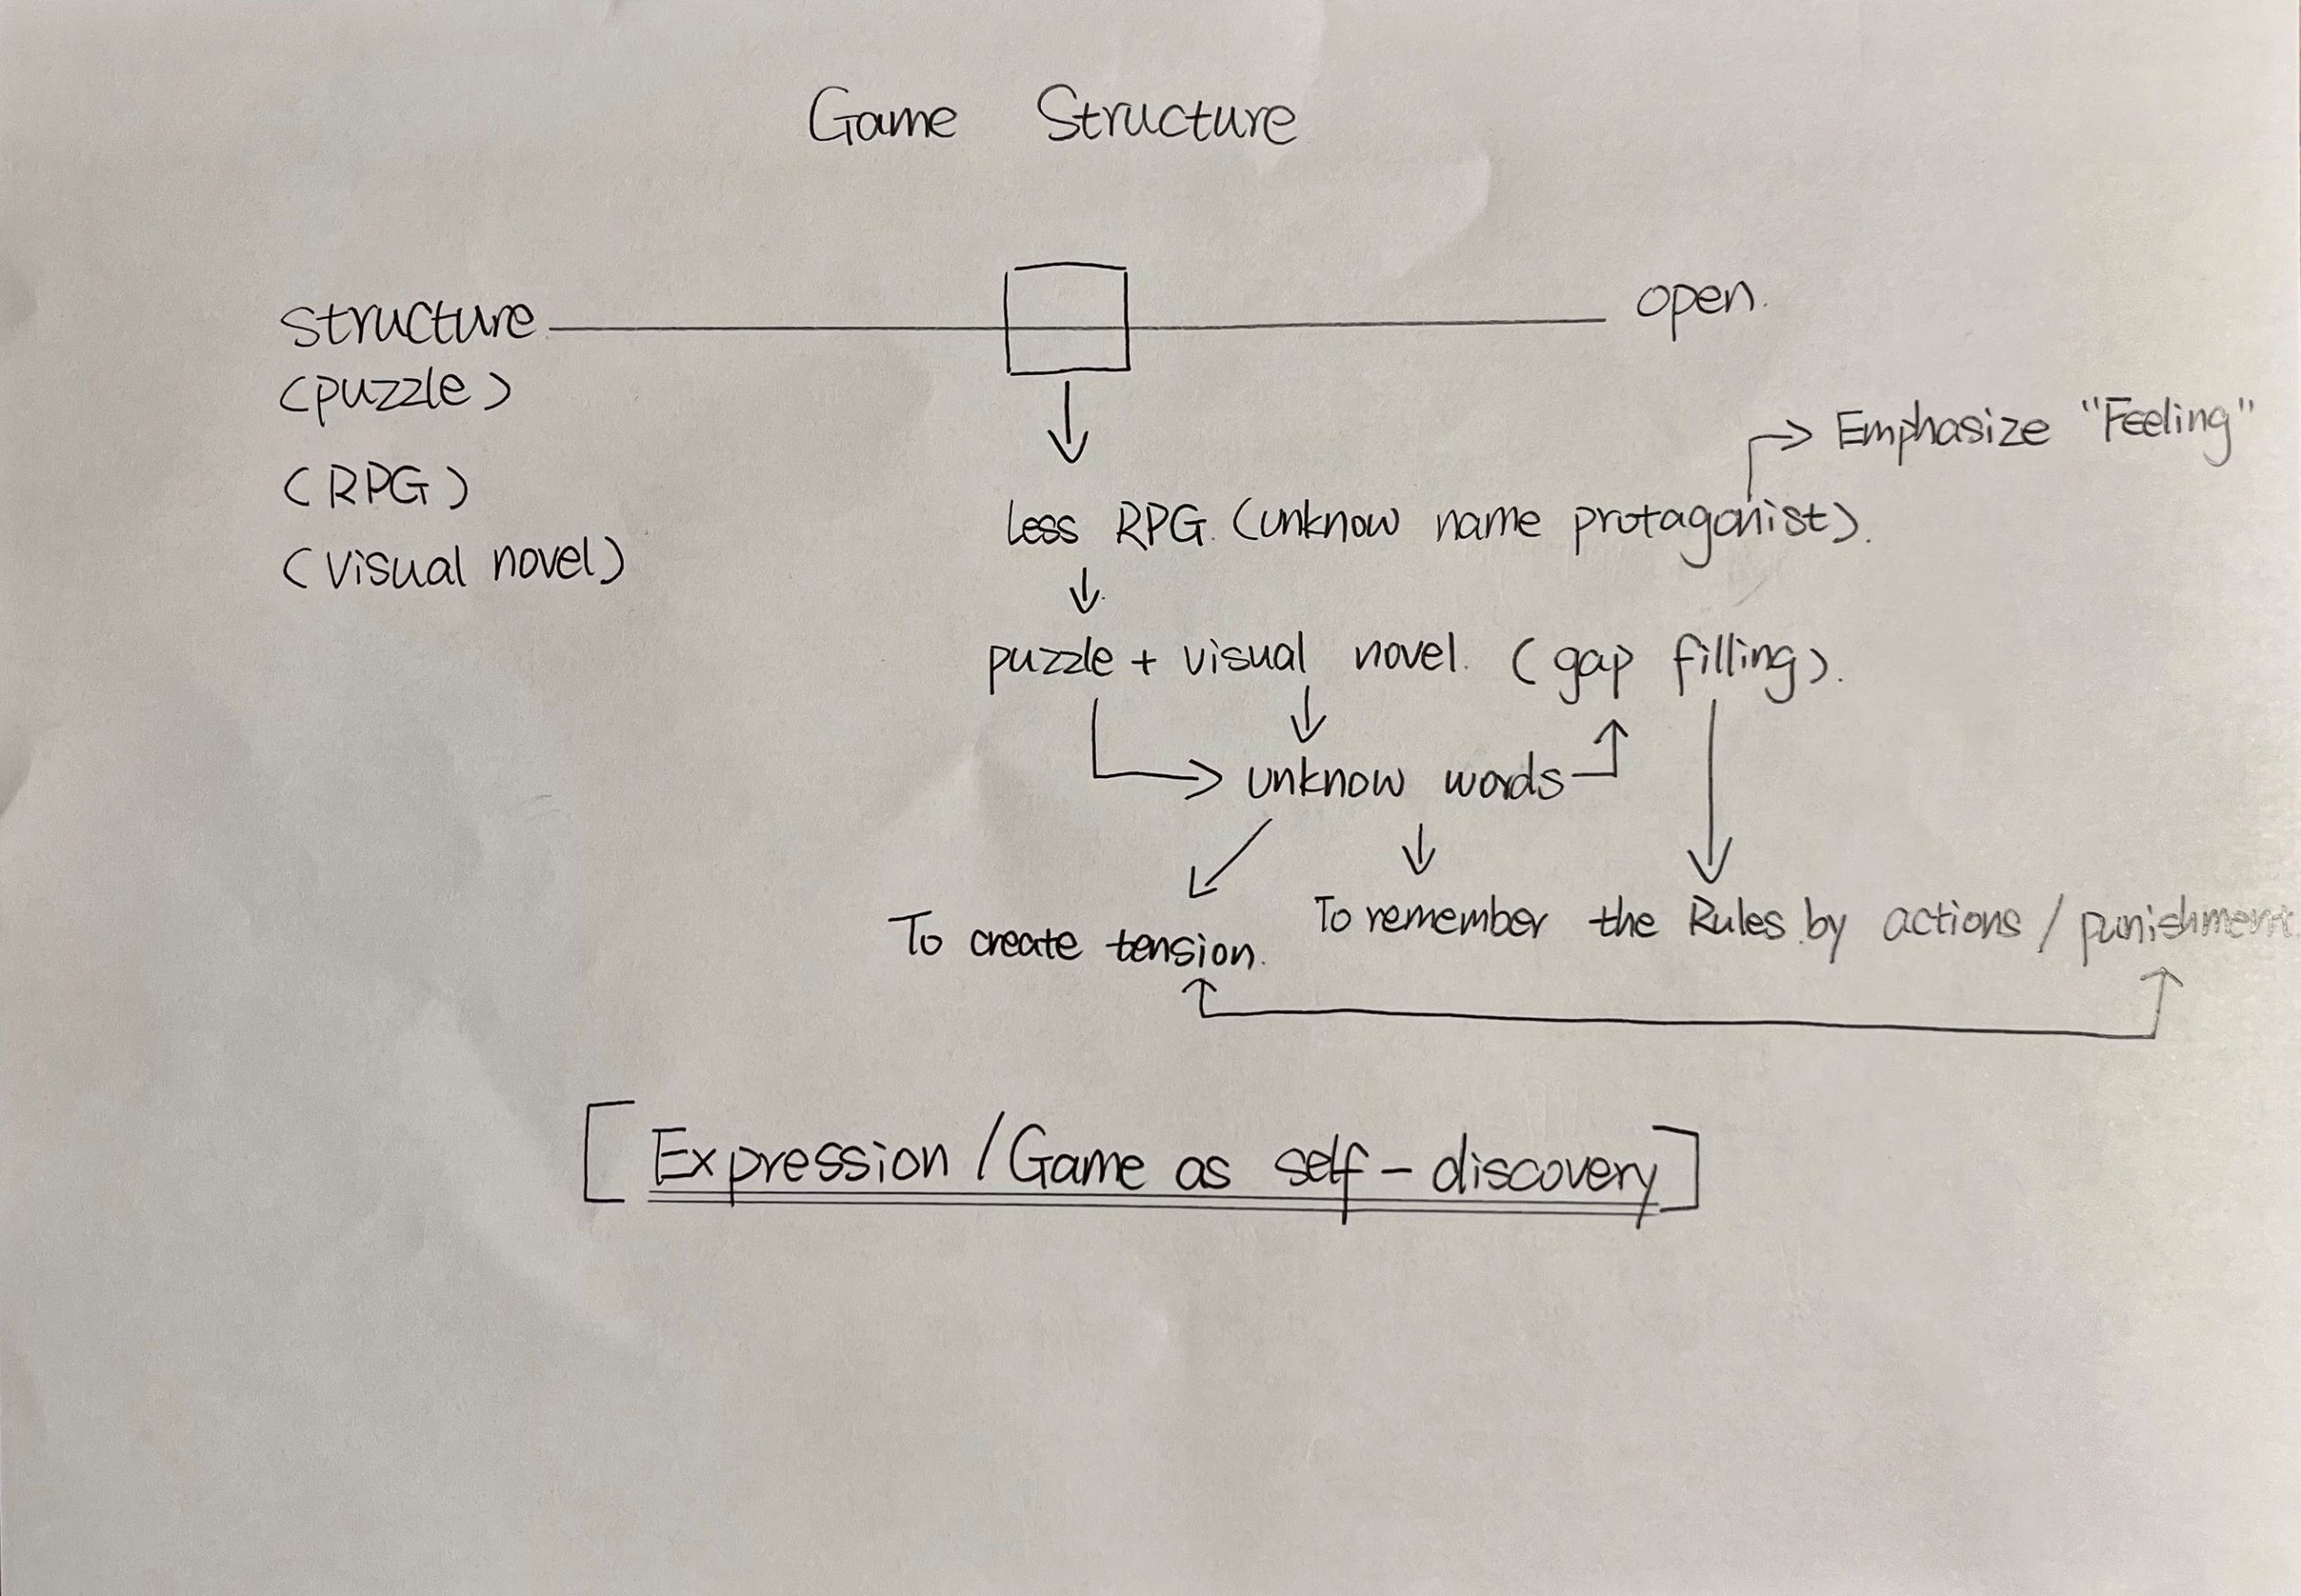 Game Structure
structure
open.
(puzzle)
(RPG)
(visual novel)
Emphasize "Feeling"
less RPG. (unknow name protagonist).
puzzle + visual novel. (gap filling).
unknow words
To create tension.
To remember the Rules by actions / punishment.
[Expression / Game as self-discovery]